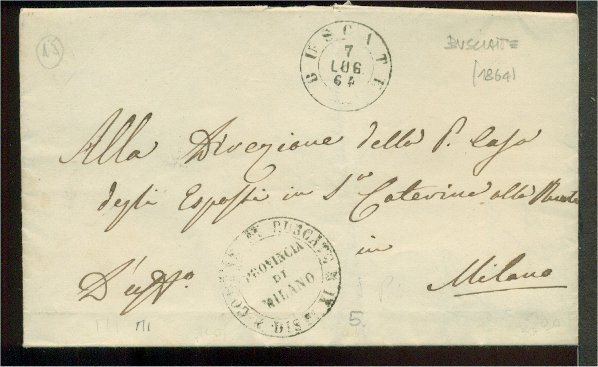 15
BUSCATE
7
LUG
64
BUSCIATE
(1864)
Alla Direzione della P. Casa
degli Esposti in S.ta Caterina alla Ruota
in
D'Uff.o
Milano
COMUNE DI BUSCATE
DIS. IV
PROVINCIA
DI
MILANO
5.